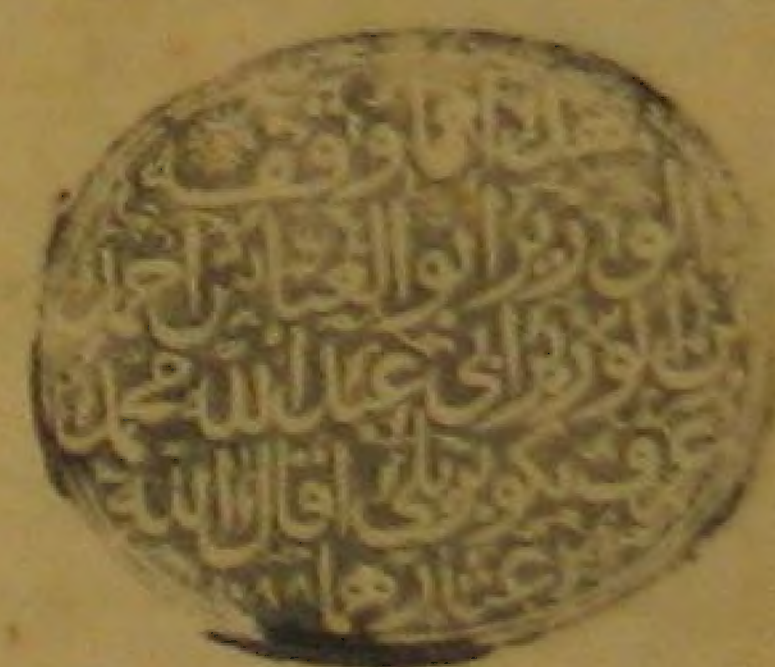 هذا مما وقف
الوزير ابو العباس احمد
بن الوزير ابي عبد الله محمد
عرف بكوپريلي اقال الله
عثارهما